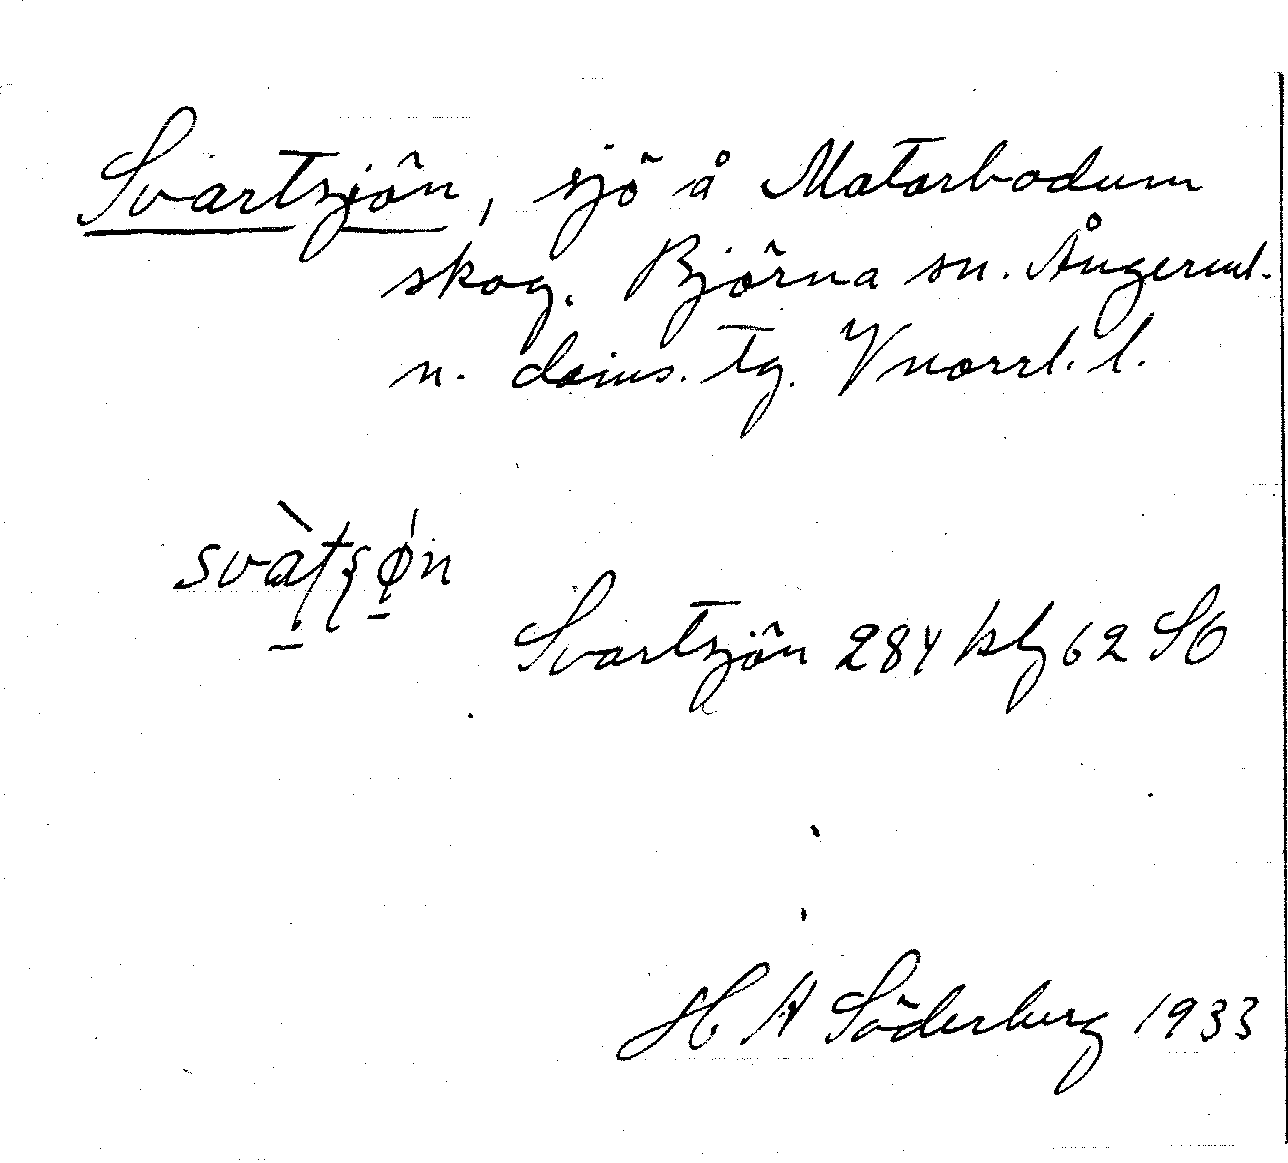 Svartsjön, sjö å Matarbodum
skog. Björna sn. Ångerml.
n. doms. tg. Vnorrl. l.
Svartsjön 284 kbl 62 SO
H A Söderberg 1933